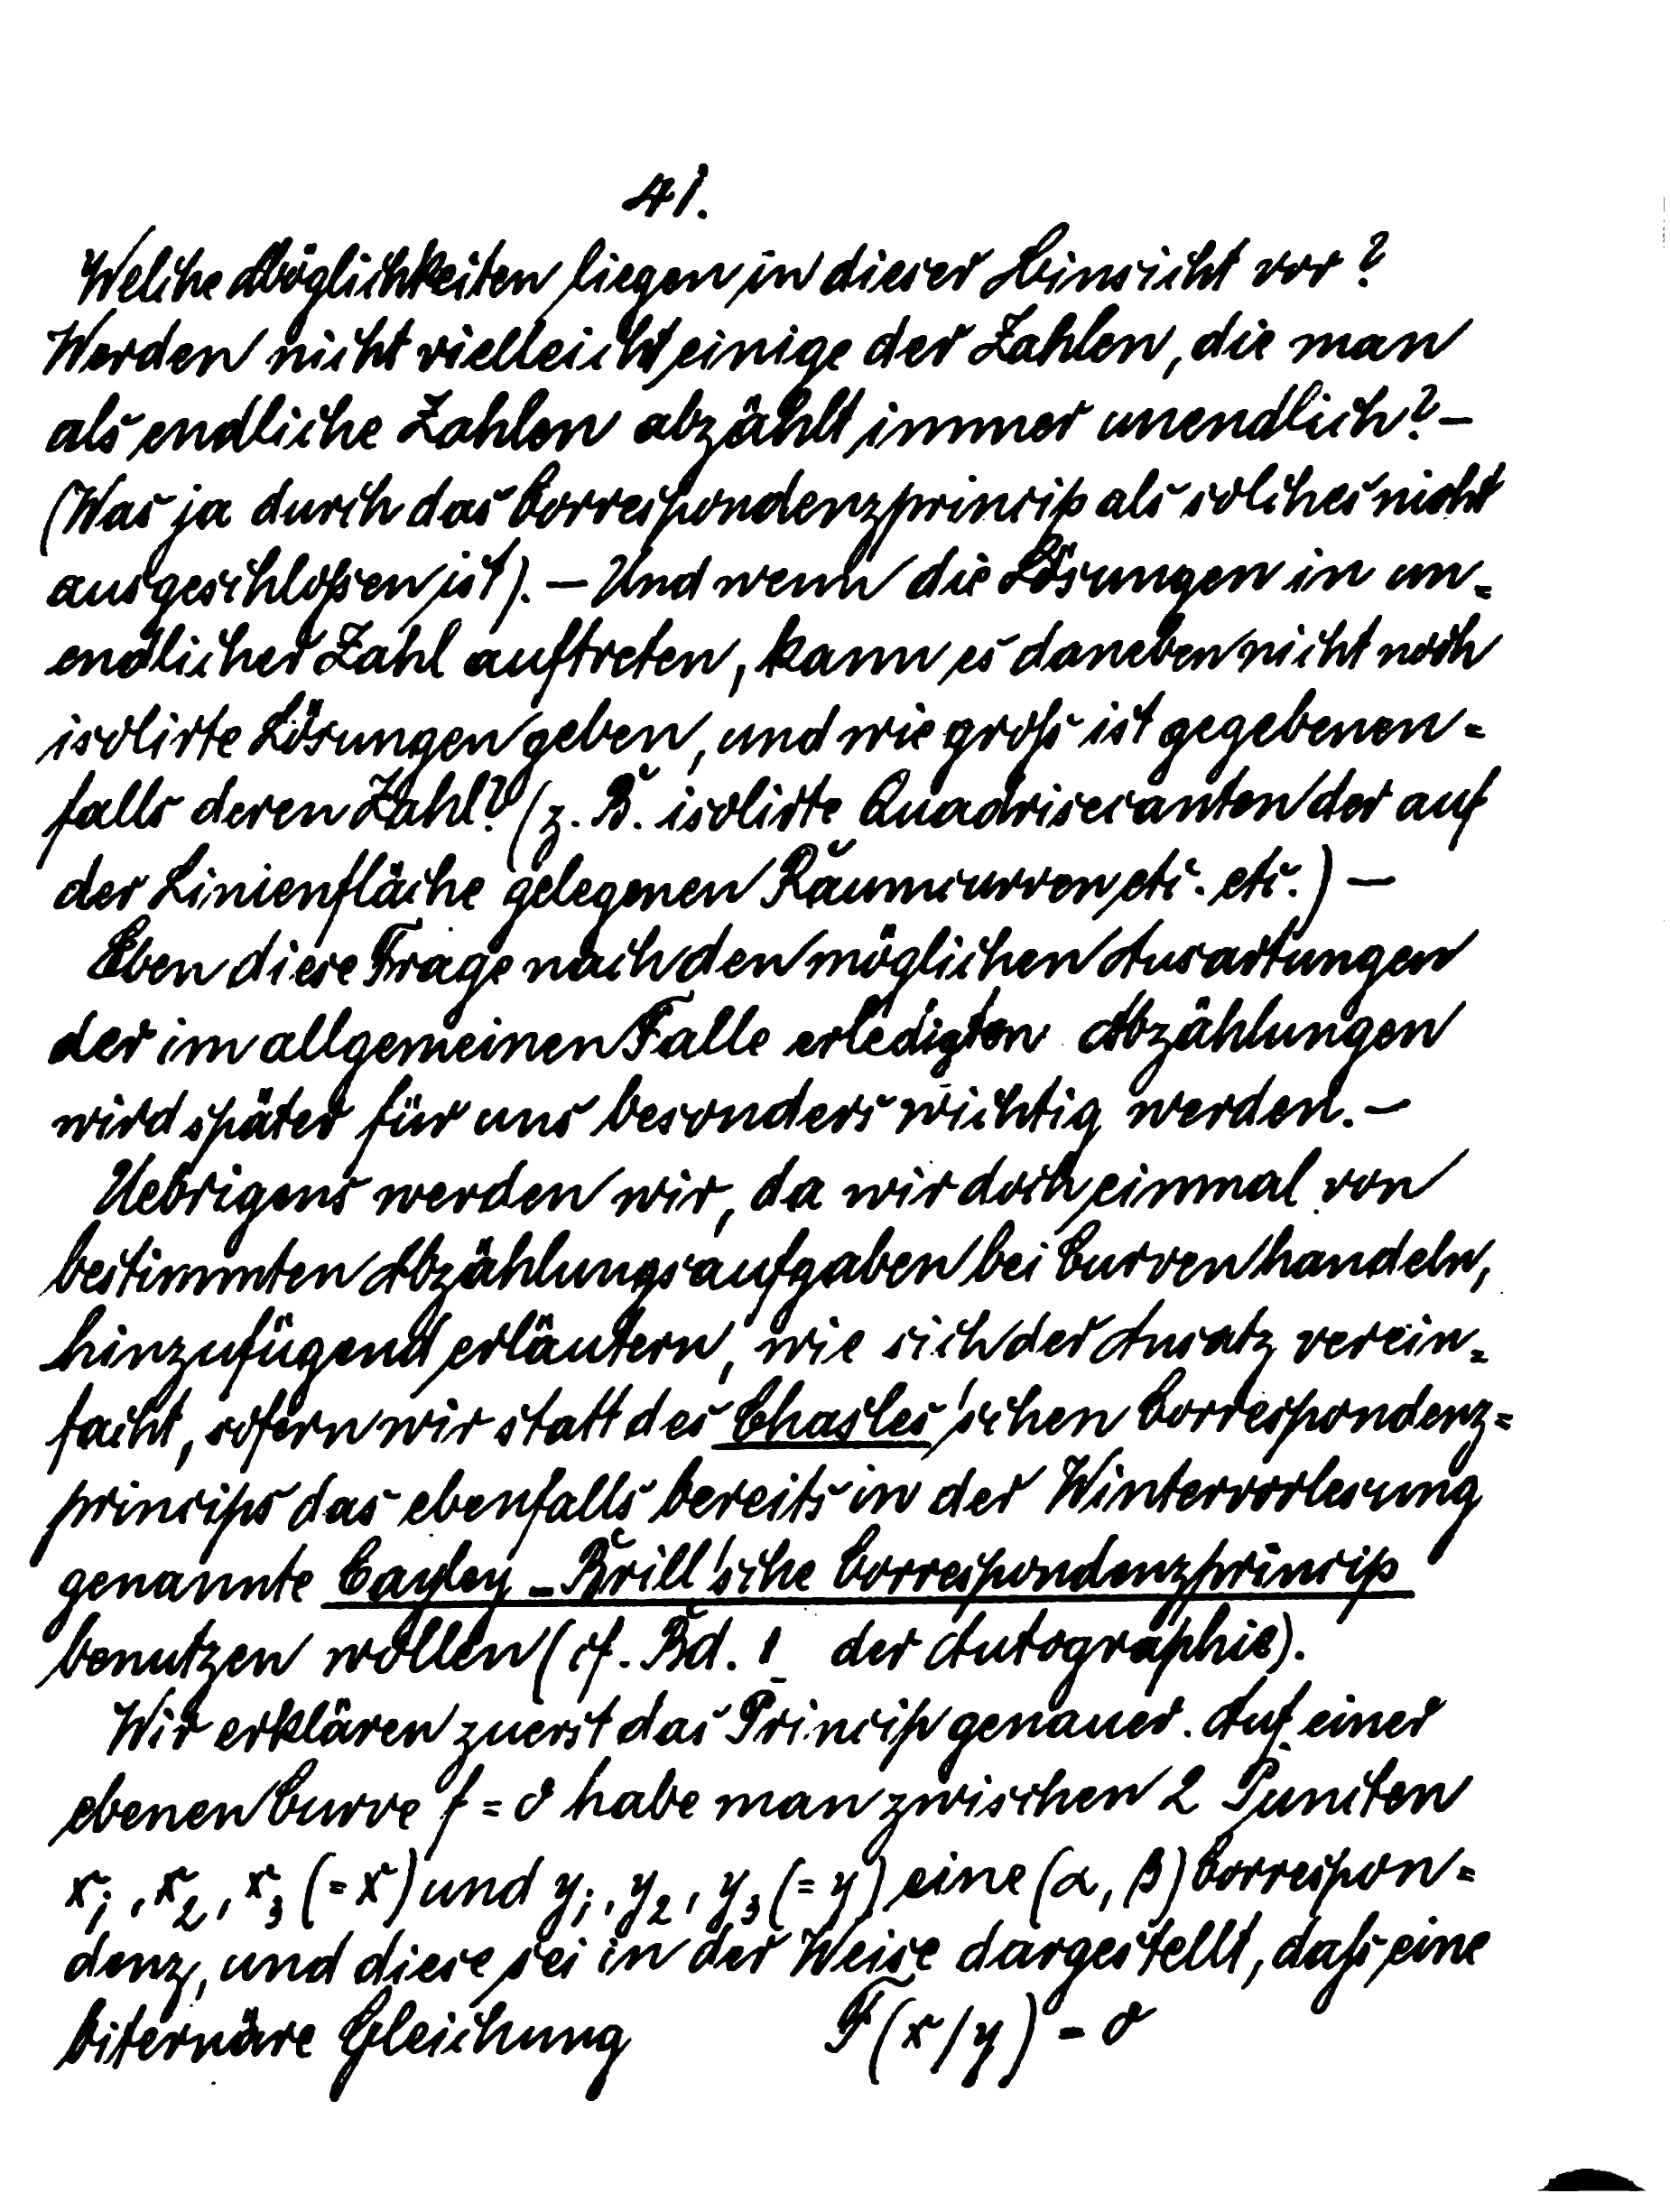 41.
Welche Möglichkeiten liegen in dieser Hinsicht vor?
Werden nicht vielleicht einige der Zahlen, die man
als endliche Zahlen abzählt immer unendlich? —
(Was ja durch das Correspondenzprincip als solches nicht
ausgeschloßen ist). — Und wenn die Lösungen in un-
endlicher Zahl auftreten, kann es daneben nicht noch
isolirte Lösungen geben, und wie groß ist gegebenen-
falls deren Zahl? (z. B. isolirte Quadrisecanten der auf
der Linienfläche gelegenen Raumcurven etc. etc.) —
Eben diese Frage nach den möglichen Ausartungen
der im allgemeinen Falle erledigten Abzählungen
wird später für uns besonders wichtig werden. —
Uebrigens werden wir, da wir doch einmal von
bestimmten Abzählungsaufgaben bei Curven handeln,
hinzufügend erläutern, wie sich der Ansatz verein-
facht, sofern wir statt des Chasles'schen Correspondenz-
princips das ebenfalls bereits in der Wintervorlesung
genannte Cayley-Brill'sche Correspondenzprincip
benutzen wollen (cf. Bd. 1 der Autographie).
Wir erklären zuerst das Princip genauer. Auf einer
ebenen Curve f = 0 habe man zwischen 2 Puncten
x₁, x₂, x₃ (= x) und y₁, y₂, y₃ (= y) eine (α, β) Correspon-
denz, und diese sei in der Weise dargestellt, daß eine
biternäre Gleichung F(x/y) = 0